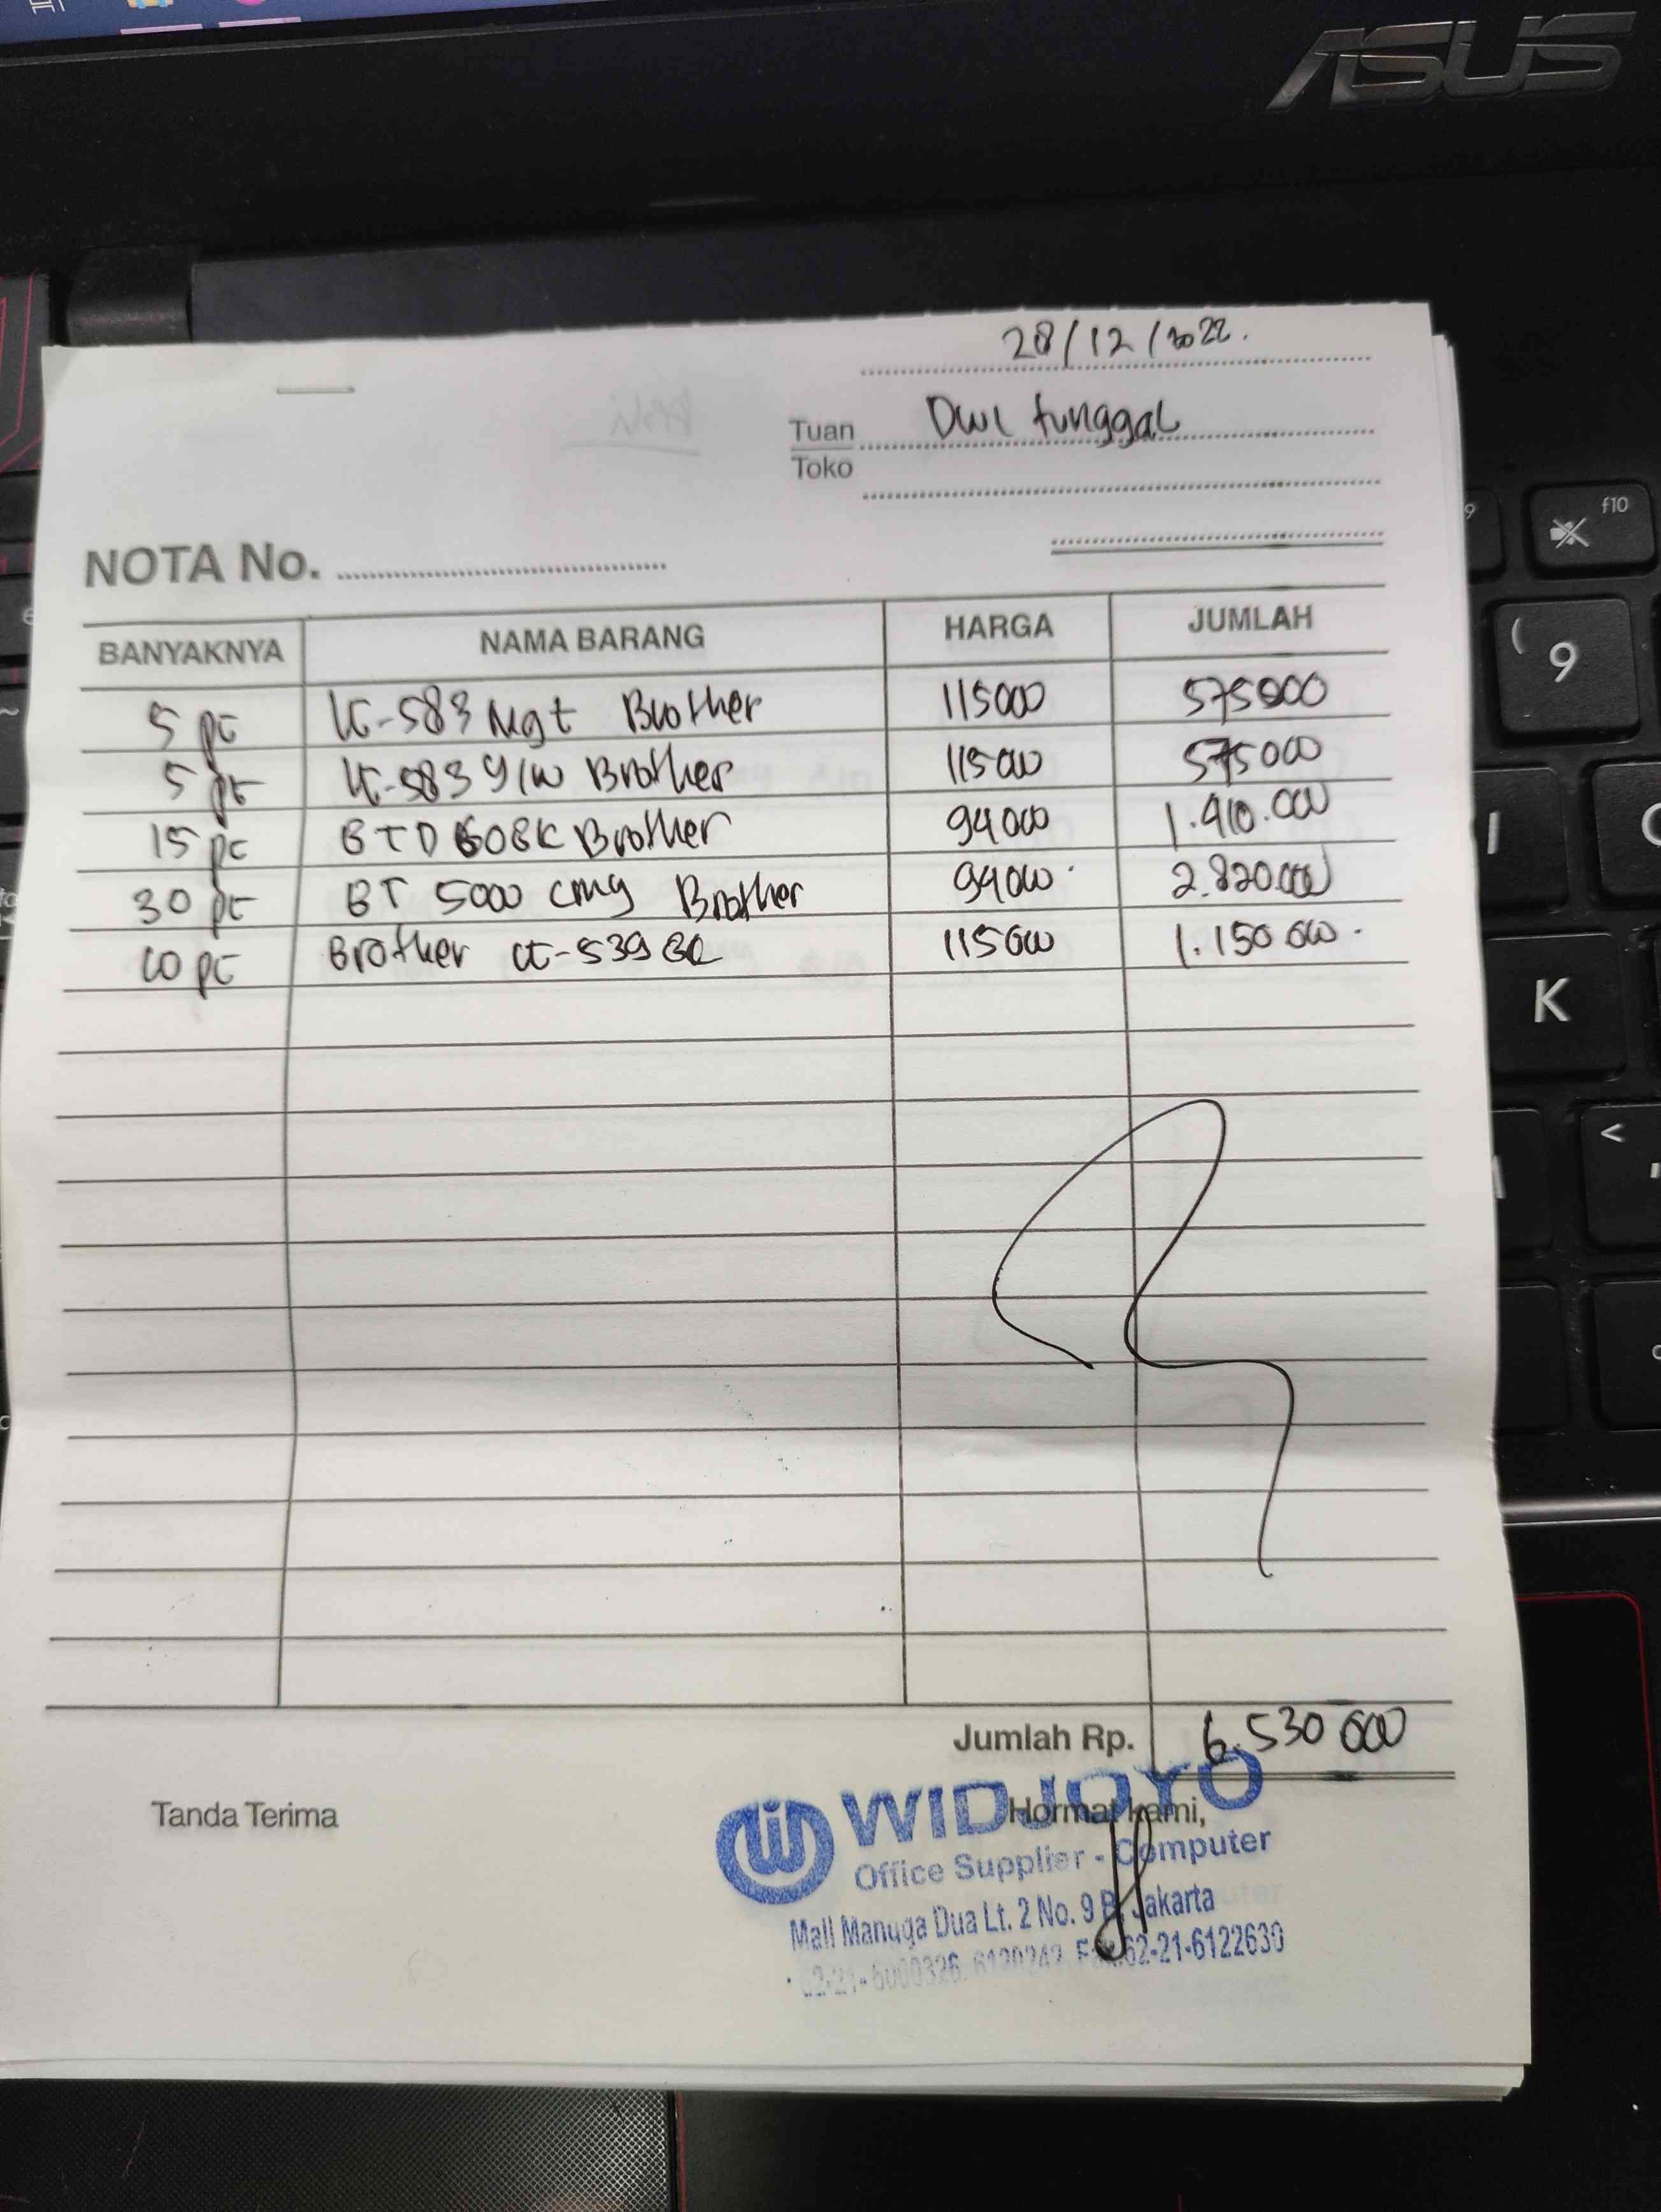 ASUS
28/12/2022.
Tuan Dwi tunggal
Toko
NOTA No.
BANYAKNYA NAMA BARANG HARGA JUMLAH
5 pc LC-583 Mgt Brother 115000 575000
5 pc LC-583 Y/W Brother 115000 575000
15 pc BTD60BK Brother 94000 1.410.000
30 pc BT 5000 cmy Brother 94000 2.820.000
10 pc Brother LC-539 BK 115000 1.150.000
Jumlah Rp. 6.530.000
Tanda Terima Hormat kami,
WIDJOYO
Office Supplier - Computer
Mall Mangga Dua Lt. 2 No. 9 B, Jakarta
Fax.62-21-6122630
f10
9
K